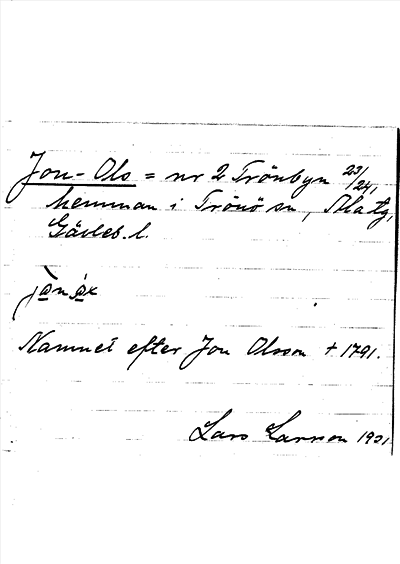 Jon-Ols = nr 2 Trönbyn 23/24,
hemman i Trönö sn,
Gävleb. l.
Namnet efter Jon Olsson † 1791.
Lars Larsson 1921